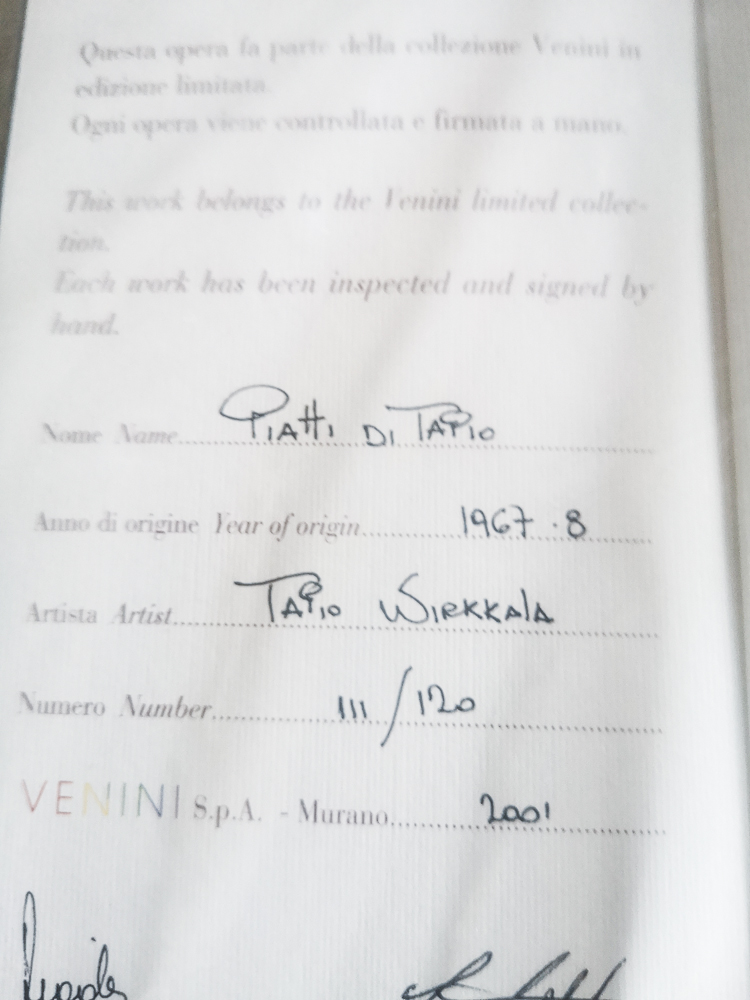 Questa opera fa parte della collezione Venini in
edizione limitata.
Ogni opera viene controllata e firmata a mano.
This work belongs to the Venini limited collec-
tion.
Each work has been inspected and signed by
hand.
Nome Name PIATTI DI TAPIO
Anno di origine Year of origin 1967.8
Artista Artist TAPIO WIRKKALA
Numero Number 111/120
VENINI S.p.A. - Murano 2001